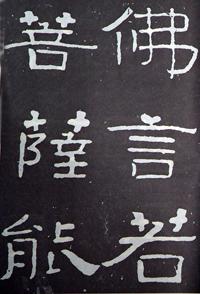 佛言若
菩薩能